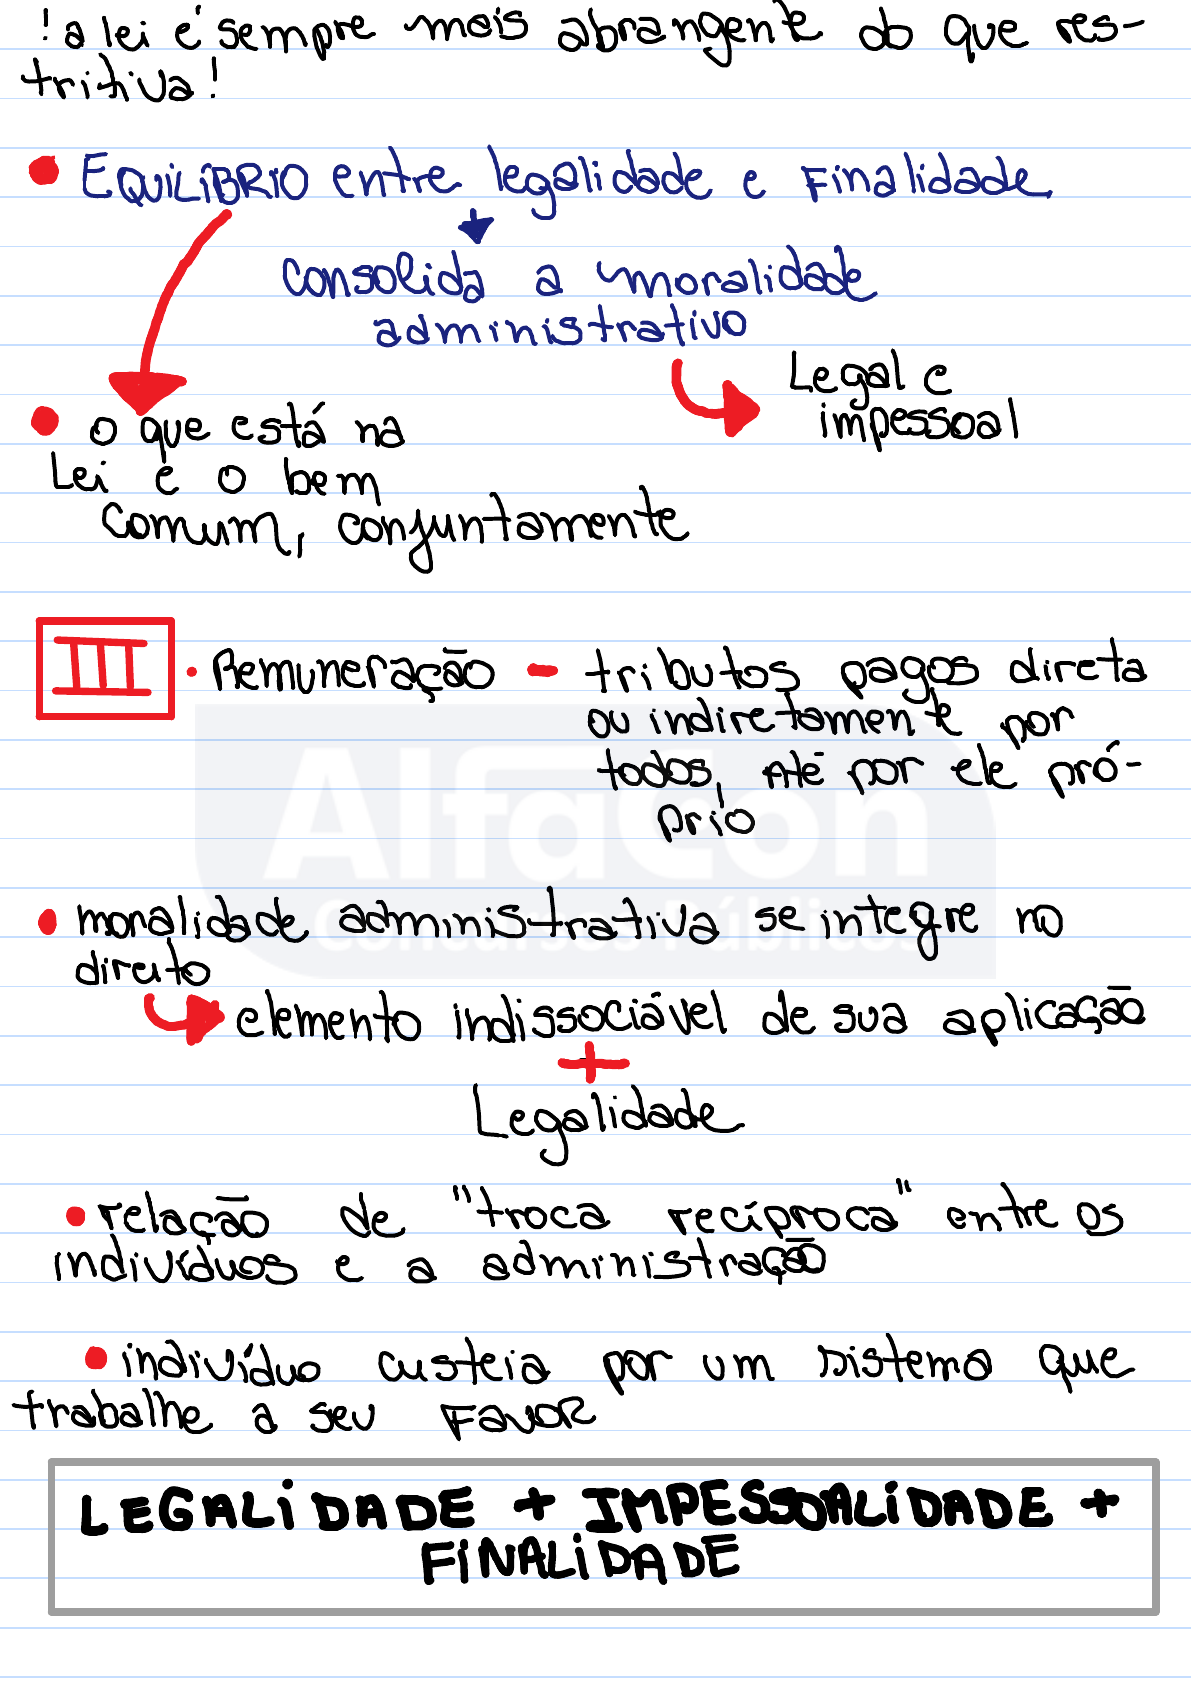 ! a lei é sempre mais abrangente do que res-
tritiva!
• EQUILÍBRIO entre legalidade e Finalidade
consolida a moralidade
administrativo
Legal e
impessoal
• o que está na
Lei e o bem
comum, conjuntamente
III • Remuneração - tributos pagos direta
ou indiretamente por
todos, Até por ele pró-
prio
AlfaCon
Concursos Públicos
• moralidade administrativa se integre no
direito
elemento indissociável de sua aplicação
+
Legalidade
• relação de "troca recíproca" entre os
indivíduos e a administração
• indivíduo custeia por um sistema que
trabalhe a seu FAVOR
LEGALiDADE + IMPESSOALiDADE +
FiNALiDADE